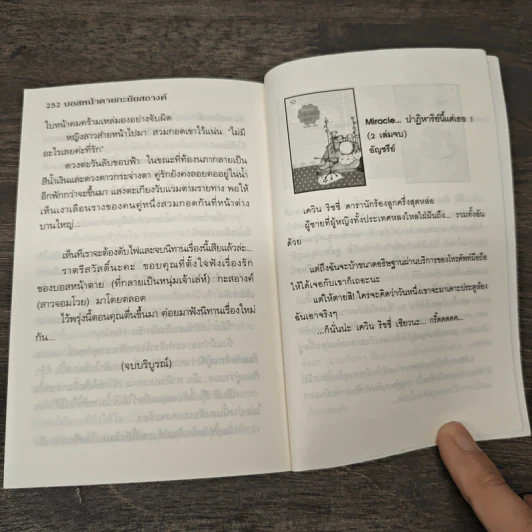 252 บอสหน้าตายกะยัยสอางค์
ใบหน้าคมคร้ามเหล่มองอย่างจับผิด
หญิงสาวส่ายหน้าไปมา สวมกอดเขาไว้แน่น "ไม่มี
อะไรเลยค่ะที่รัก"
ดวงตะวันลับขอบฟ้า ในขณะที่ท้องนภากลายเป็น
สีน้ำเงินและดวงดาวกระจ่างตา คู่รักยังคงลอยคออยู่ในน้ำ
อีกพักกว่าจะขึ้นมา แสงตะเกียงวับแวมตามรายทาง พอให้
เห็นเงาเลือนรางของคนคู่หนึ่งสวมกอดกันที่หน้าต่าง
บานใหญ่...
เห็นทีเราจะต้องดับไฟและจบนิทานเรื่องนี้เสียแล้วล่ะ...
ราตรีสวัสดิ์นะคะ ขอบคุณที่ตั้งใจฟังเรื่องราว
ของบอสหน้าตาย (ที่กลายเป็นหนุ่มเจ้าเล่ห์) กะสอางค์
(สาวจอมโวย) มาโดยตลอด
ไว้พรุ่งนี้ตอนคุณตื่นขึ้นมา ค่อยมาฟังนิทานเรื่องใหม่
กัน...
(จบบริบูรณ์)
Miracle... ปาฏิหาริย์นี้แด่เธอ 1
(2 เล่มจบ)
ธัญชรีย์
เควิน ริชชี่ ดารานักร้องลูกครึ่งสุดหล่อ
ผู้ชายที่ผู้หญิงทั้งประเทศหลงใหลใฝ่ฝันถึง... รวมทั้งฉัน
ด้วย
แต่ถึงฉันจะบ้าขนาดอธิษฐานผ่านบริการของโทรศัพท์มือถือ
ให้ได้เจอกับเขาก็เถอะนะ
แต่ให้ตายสิ! ใครจะคิดว่าวันหนึ่งเขาจะมาเคาะประตูห้อง
ฉันเอาจริงๆ
...ก็นั่นน่ะ เควิน ริชชี่ เชียวนะ... กรี้ดดดดด...